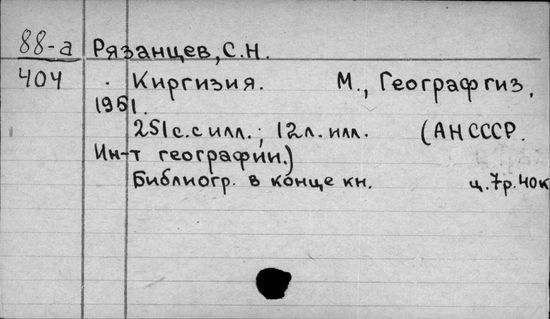 88-а Рязанцев, С.Н.
404 Киргизия. М., Географгиз,
1951.
251с.с илл.; 12л. илл. (АН СССР.
Ин-т географии.)
Библиогр. в конце кн. ц.7р.40к